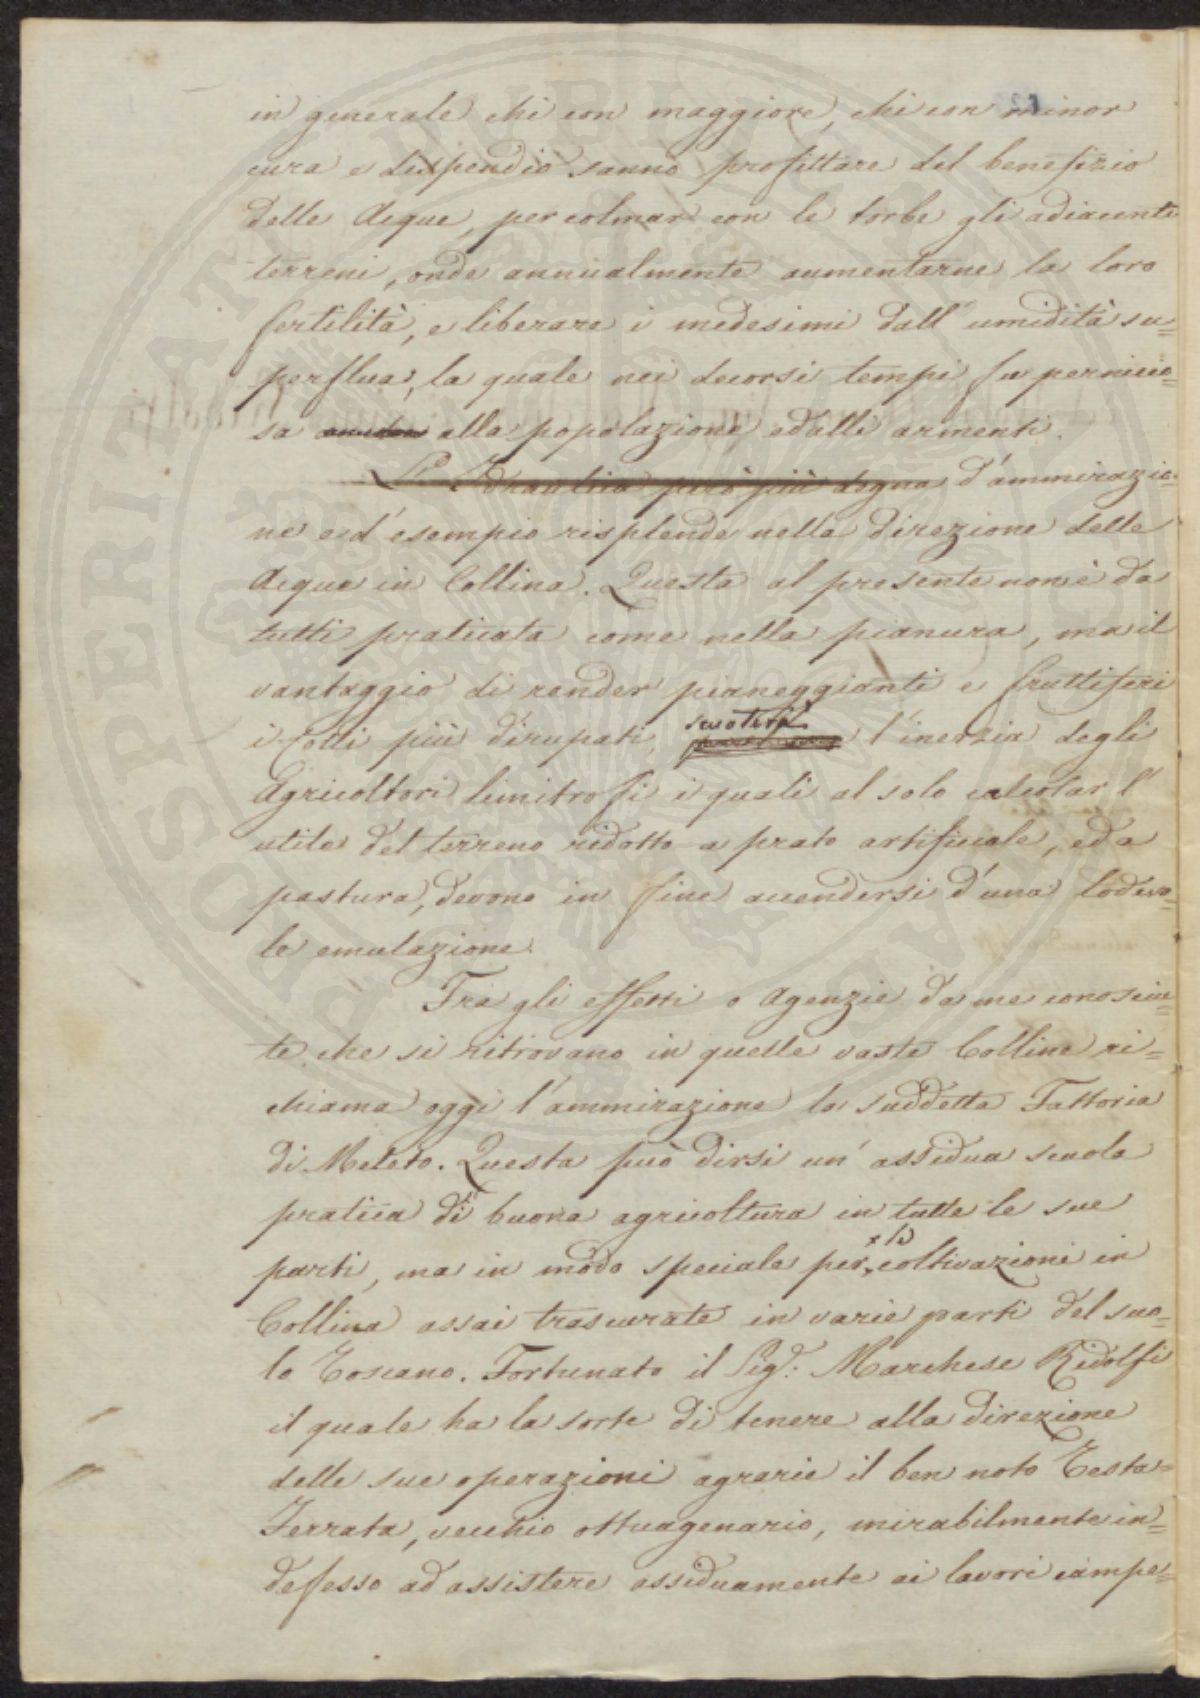 in generale chi con maggiore, chi con minor
cura e dispendio sanno profittare del benefizio
delle Acque, per colmar con le torbe gli adiacenti
terreni, onde annualmente aumentarne la loro
fertilità, e liberare i medesimi dall' umidità su=
perflua, la quale nei decorsi tempi fu pernicio=
sa alla popolazione, ed alli armenti.
L' Idraulica però più degna d'ammirazio=
ne ed' esempio risplende nella direzione delle
Acque in Collina. Questa al presente non è da
tutti praticata come nella pianura, ma il
vantaggio di render pianeggianti e fruttiferi
i Colli più dirupati, scuoterà l'inerzia degli
Agricoltori limitrofi i quali al solo calcolar l'
utile del terreno ridotto a prato artificiale, ed a
pastura, devono in fine accendersi d'una lodevo=
le emulazione.
Tra gli effetti o Agenzie da me conosciu=
te che si ritrovano in quelle vaste Colline ri=
chiama oggi l'ammirazione la suddetta Fattoria
di Meleto. Questa può dirsi un' assidua scuola
pratica di buona agricoltura in tutte le sue
parti, ma in modo speciale per le coltivazioni in
Collina assai trascurate in varie parti del suo=
lo Toscano. Fortunato il Sig.: Marchese Ridolfi
il quale ha la sorte di tenere alla direzione
delle sue operazioni agrarie il ben noto Testa=
Ferrata, vecchio ottuagenario, mirabilmente in=
defesso ad assistere assiduamente ai lavori campe=